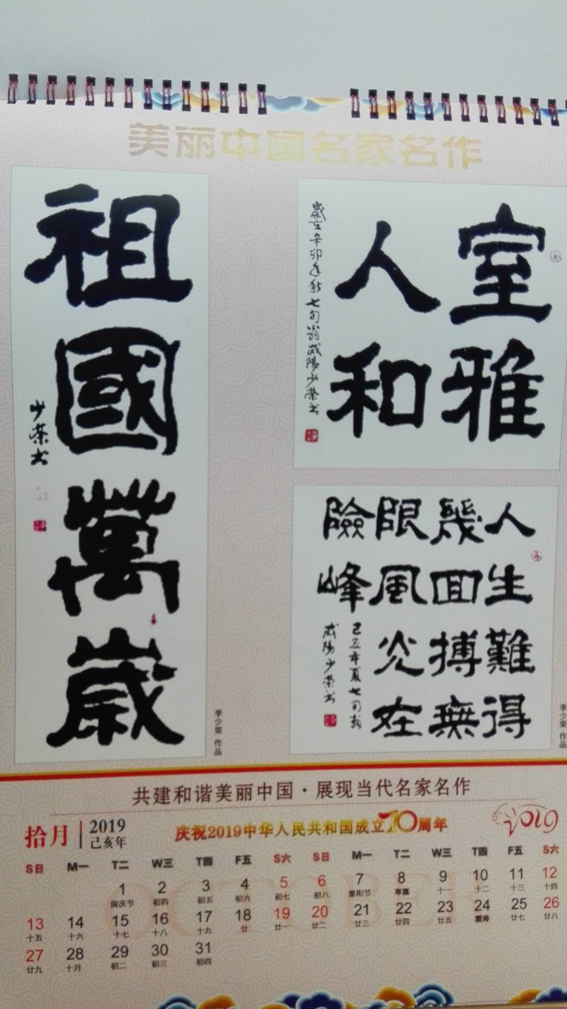 美丽中国名家名作
祖國萬歲
少榮書
李少荣 作品
室雅
人和
歲在辛卯年秋七旬翁咸陽少榮書
人生難得
幾回搏無
限風光在
險峰
己丑年夏七旬翁
咸陽少榮書
李少荣 作品
共建和谐美丽中国·展现当代名家名作
拾月
2019
己亥年
庆祝2019中华人民共和国成立70周年
2019
OCTOBER
S日 M一 T二 W三 T四 F五 S六 S日 M一 T二 W三 T四 F五 S六
1 2 3 4 5 6 7 8 9 10 11 12
国庆节 初四 初五 初六 初七 初八 重阳节 寒露 十一 十二 十三 十四
13 14 15 16 17 18 19 20 21 22 23 24 25 26
十五 十六 十七 十八 十九 廿 廿一 廿二 廿三 廿四 廿五 霜降 廿七 廿八
27 28 29 30 31
廿九 十月 初二 初三 初四